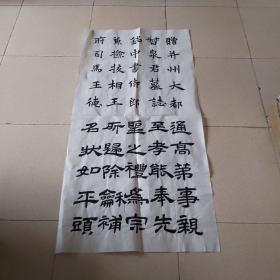 贈并州大都
督泉君墓誌
銘中書侍郎
兼檢校相王
府司馬王德
通高第事親
至孝能奉先
聖之禮爲宗
所歸除龢補
名狀如平頭